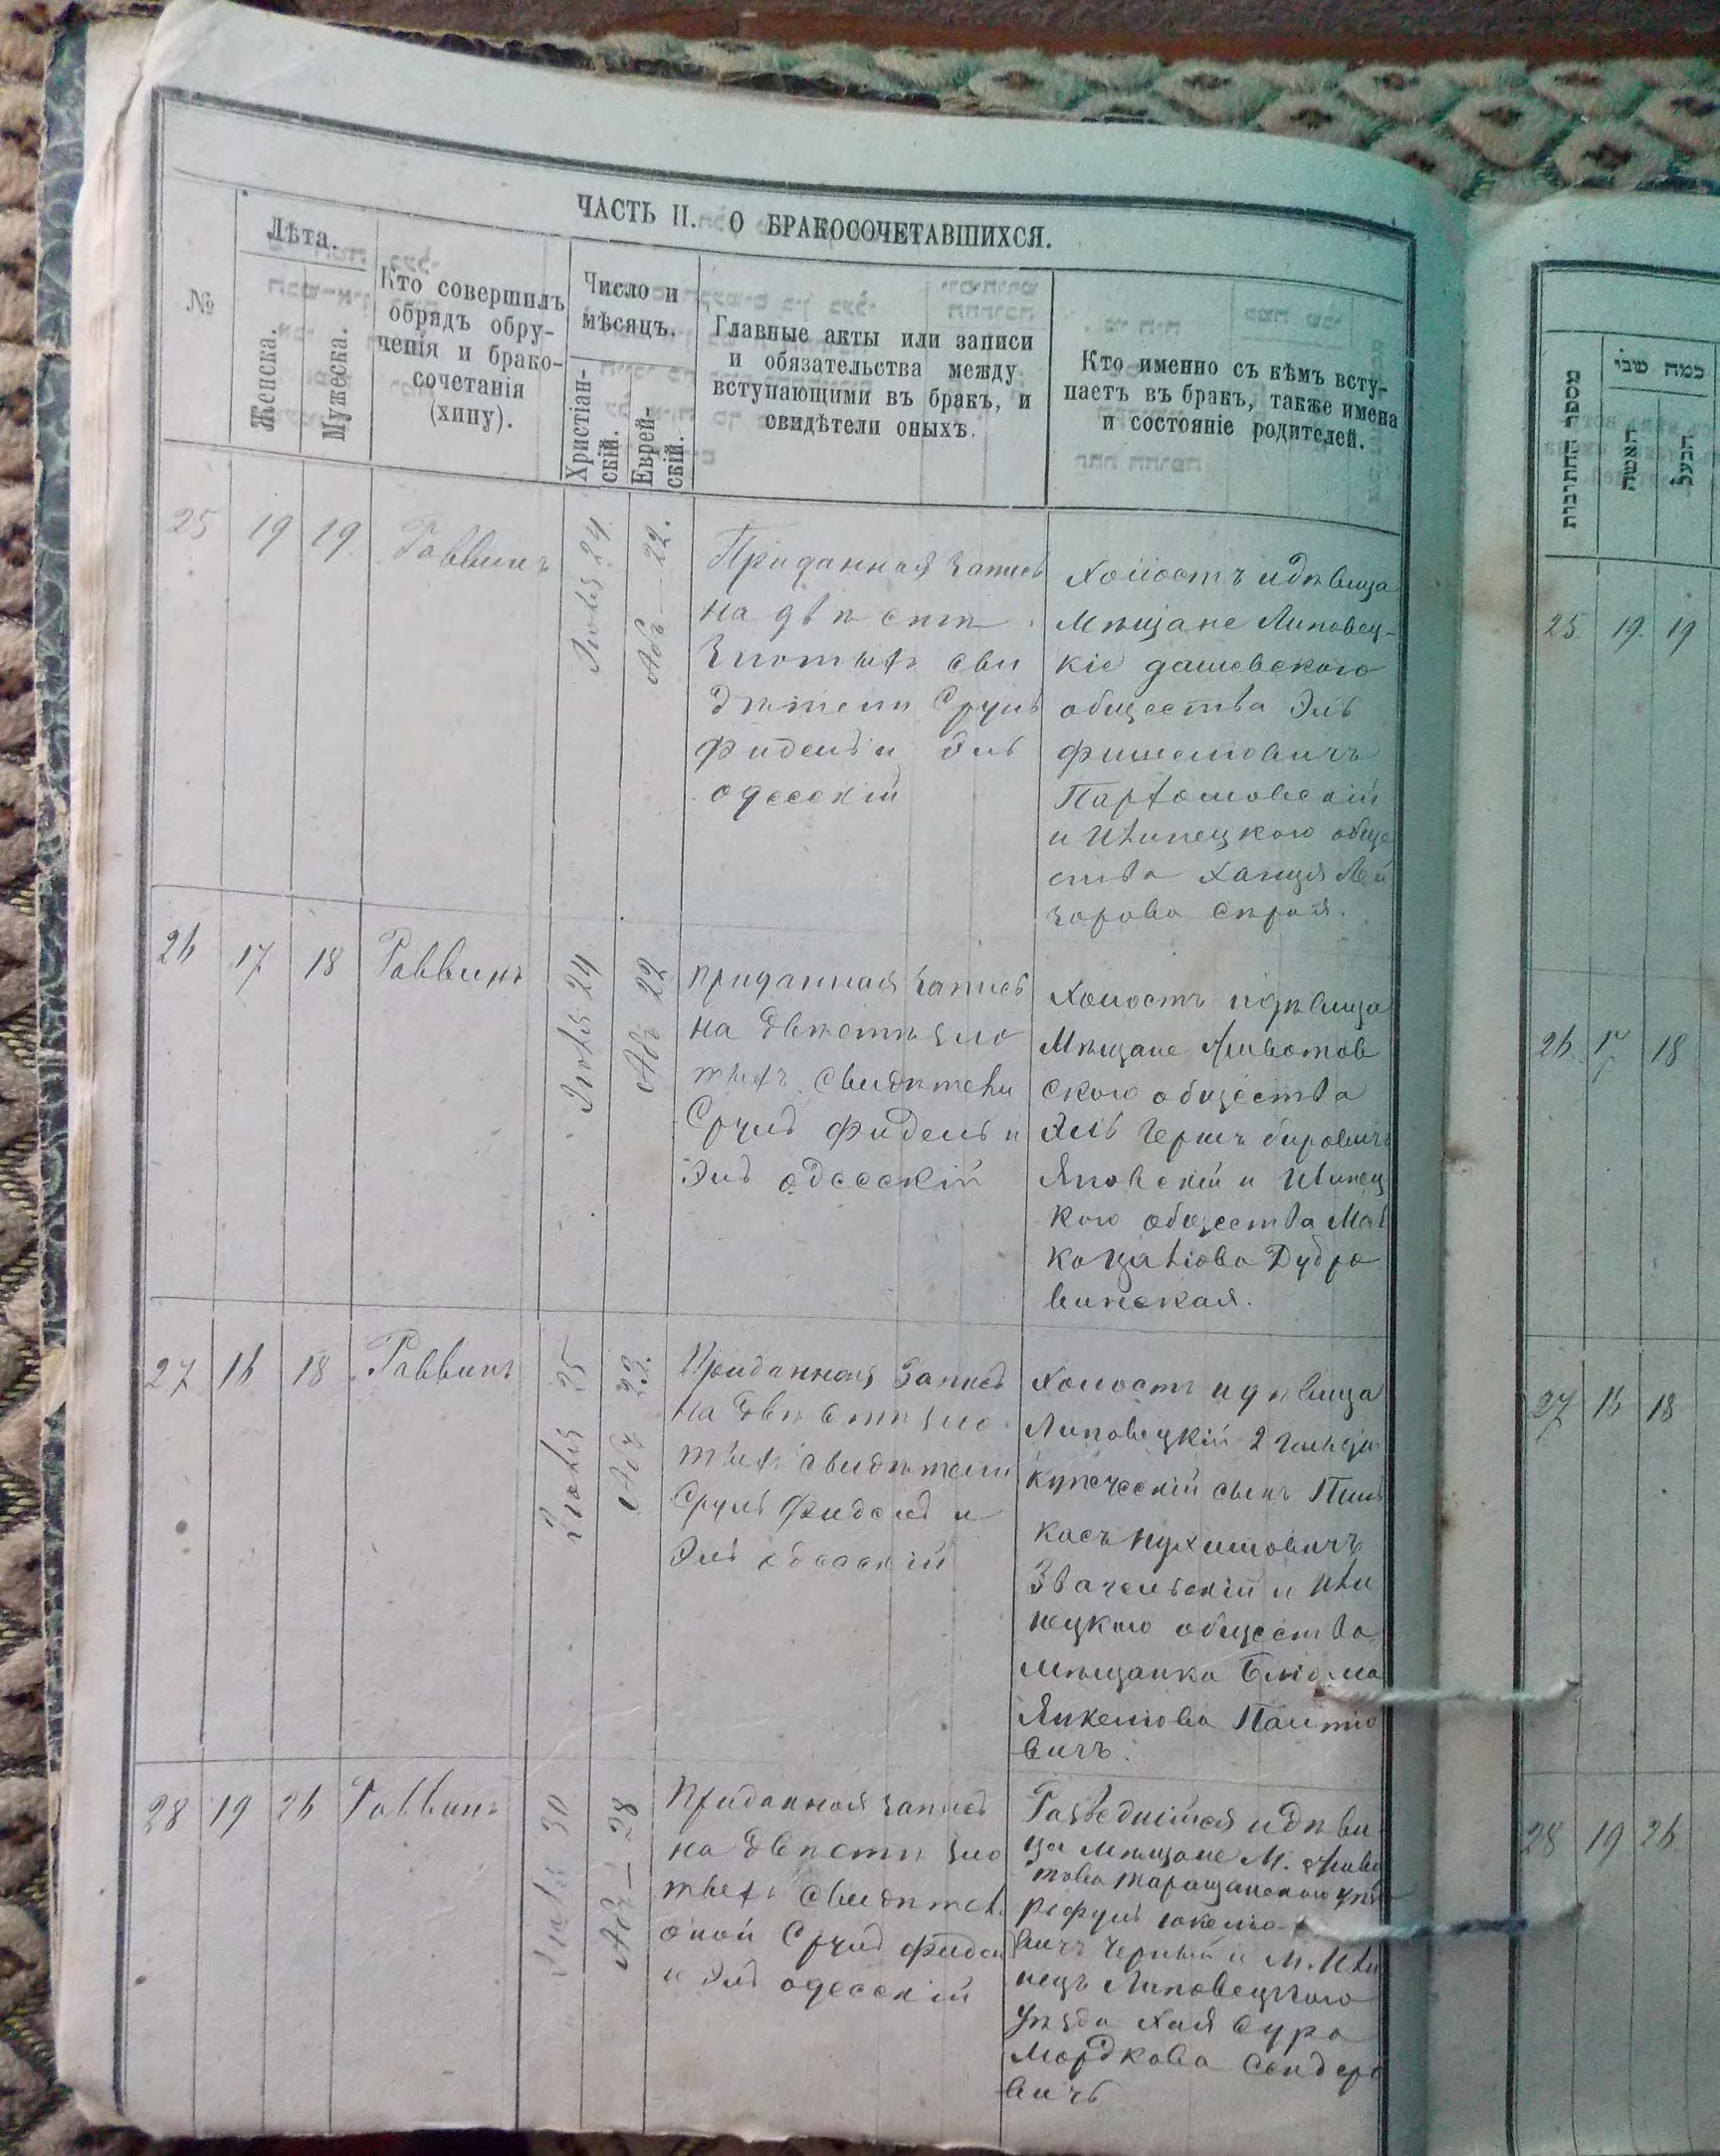 ЧАСТЬ II. О БРАКОСОЧЕТАВШИХСЯ.
№
Лѣта.
Женска.
Мужеска.
Кто совершилъ
обрядъ обру-
ченія и брако-
сочетанія
(хипу).
Число и
мѣсяцъ.
Христіан-
скій.
Еврей-
скій.
Главные акты или записи
и обязательства между
вступающими въ бракъ, и
свидѣтели оныхъ.
Кто именно съ кѣмъ всту-
паетъ въ бракъ, также имена
и состояніе родителей.
25
19
19
Раввинъ
Іюля 24
Абъ 22.
Приданная запись
на двѣ стѣ
злотыхъ сви
дѣтели Сруль
Фидель и Эль
одесскій
Холостъ и дѣвица
Мѣщане Липовец-
кіе дашевского
общества Эль
Фишелювичъ
Пархомовскій
и Илинецкого обще
ства Ханця Лей
зорова
26
17
18
Раввинъ
Іюля 24
Абъ 22
приданная запись
на двѣстѣ зло
тыхъ свидѣтели
Сруль Фидель и
Эль одесскій
Холостъ и дѣвица
Мѣщане Животов
ского общества
Эль Гершъ Беровичъ
Яновскій и Илинец
кого общества Мал
ка Дубро
винская.
27
16
18
Раввинъ
Іюля 25
Абъ 23.
Приданная запись
на двѣ стѣ зло
тыхъ свидѣтели
Сруль Фидель и
Эль одесскій
Холостъ и дѣвица
Липовецкій 2 гильдіи
купеческій сынъ Пин
касъ Нухимовичъ
Звачельскій и Или
нецкого общества
мѣщанка Блюма
Янкелюва
вичъ.
28
19
26
Раввинъ
Іюля 30
Абъ — 28
Приданная запись
на двѣстѣ зло
тыхъ свидѣтел
оной Сруль Фидель
и Эль одесскій
Разведшійся и дѣви
ца мѣщане М. Живо
това Таращанского уѣз
Рефулъ Іокелю-
вичъ Черный и М. Или
нецъ Липовецкого
Уѣзда Хая Сура
Мордкова Сендеро
вичъ
מספר החתונות
כמה שני
האשה
הבעל
25.
19.
19
26.
17
18
27
16
18
28
19
26